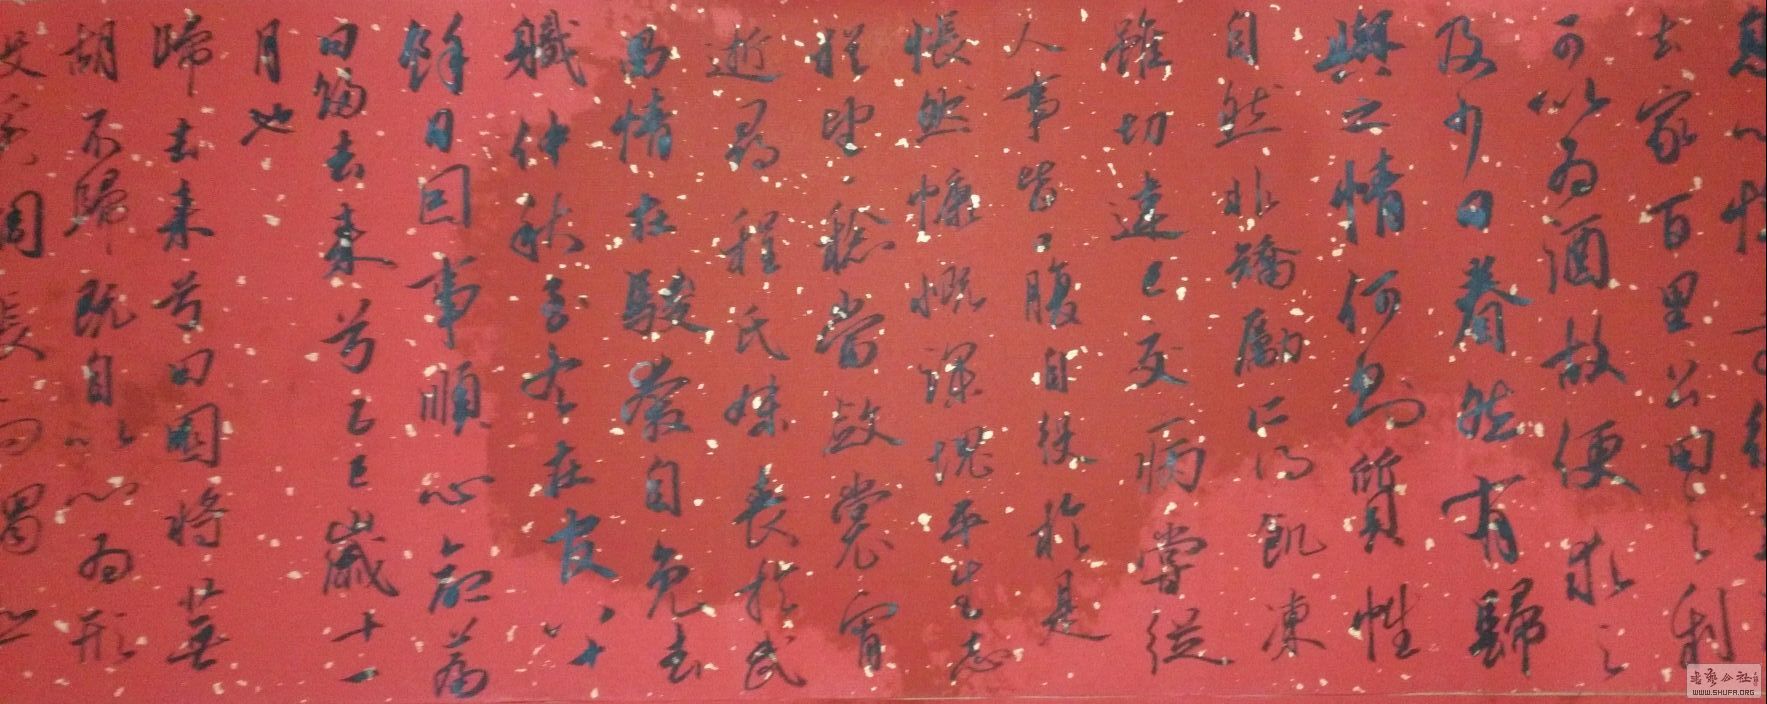 去家百里公田之利
可以為酒故便求之
及少日眷然有歸
與之情何則質性
自然非矯勵所得飢凍
雖切違己交病嘗從
人事皆口腹自役於是
悵然慷慨深愧平生志
猶望一稔當斂裳宵
逝尋程氏妹喪於武
昌情在駿奔自免去
職仲秋至冬在官八十
餘日因事順心命篇
曰歸去來兮乙巳歲十一
月也
歸去來兮田園將蕪
胡不歸既自以心為形
役奚惆悵而獨悲
WWW.SHUFA.ORG